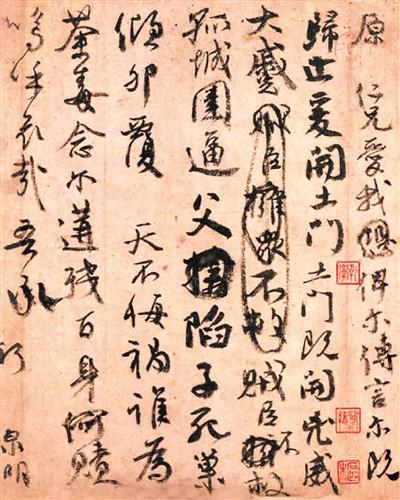 原 仁兄愛我俾爾傳言爾既
歸止爰開土門土門既開兇威
大蹙賊臣擁眾不救賊臣不救
孤城圍逼父陷子死巢
傾卵覆 天不悔禍誰為
荼毒念爾遘殘百身何贖
嗚呼哀哉吾承
泉明